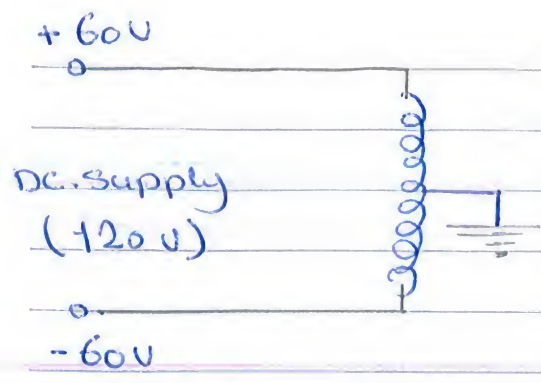 + 60V
DC. Supply
(120 V)
- 60V